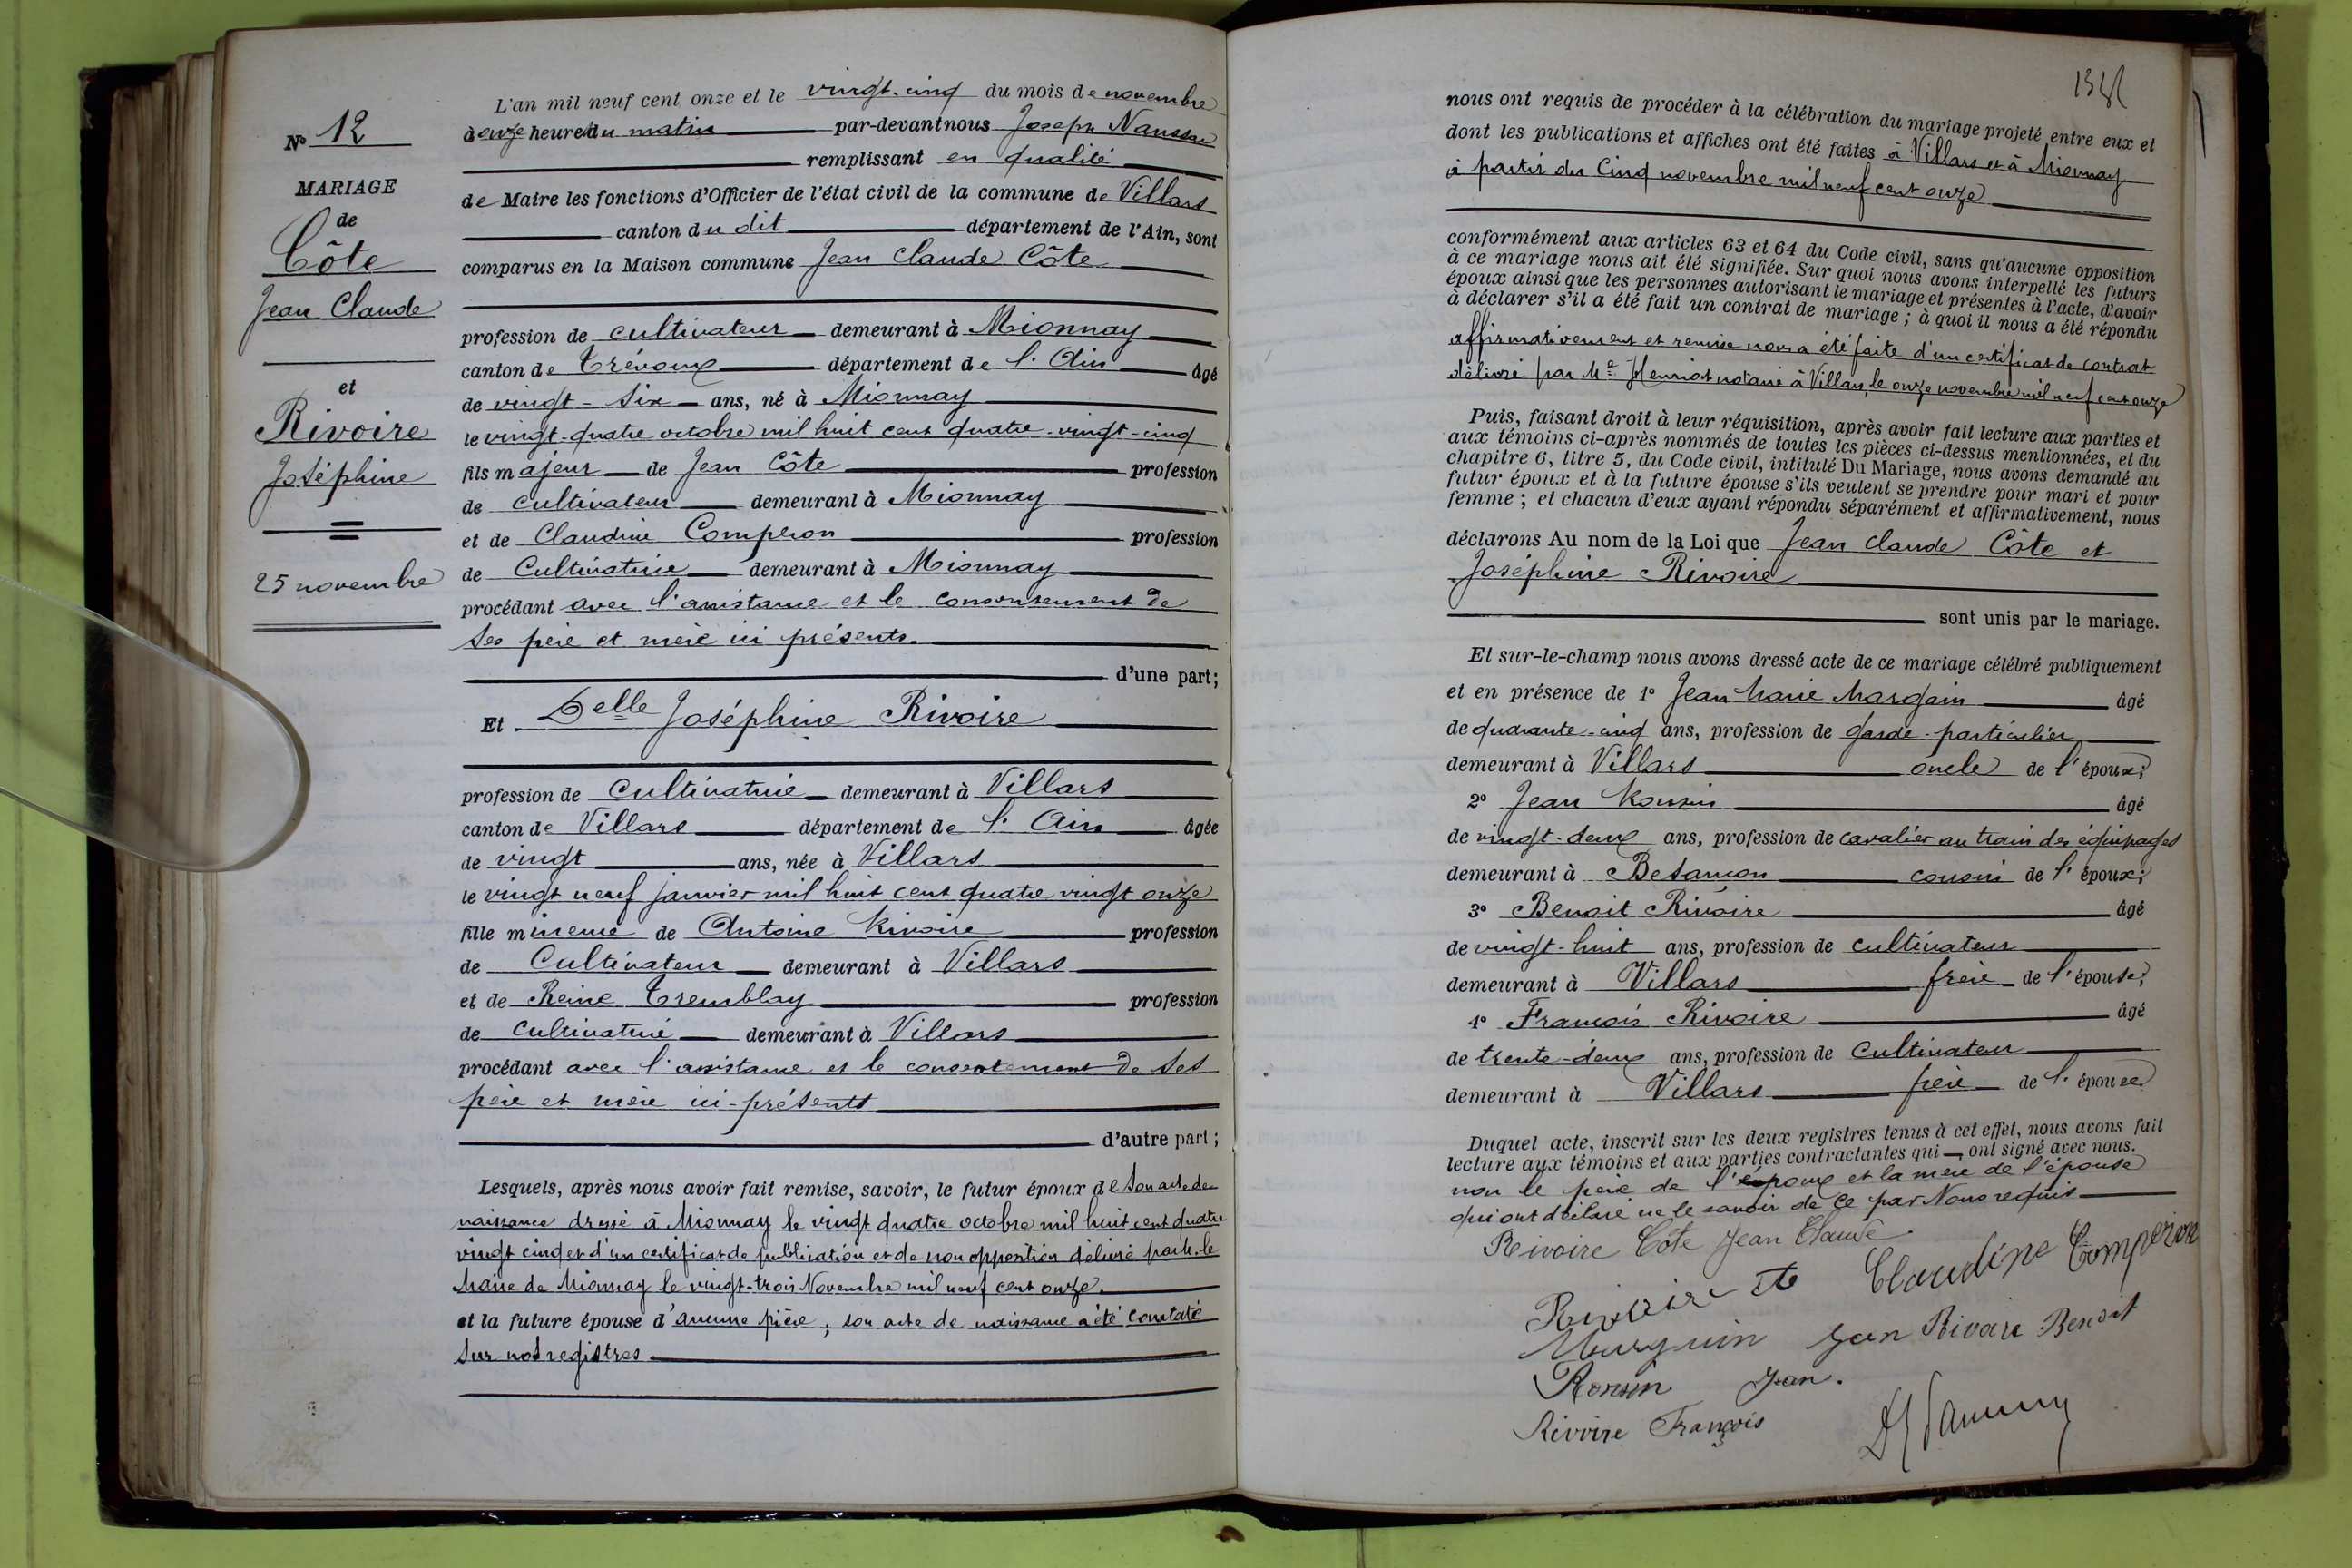 No 12
MARIAGE
de
Côte
Jean Claude
et
Rivoire
Joséphine
25 novembre
L'an mil neuf cent onze et le vingt-cinq du mois de novembre
à onze heure du matin par-devant nous Joseph
remplissant en qualité
de Maire les fonctions d'Officier de l'état civil de la commune de Villars
canton du dit département de l'Ain, sont
comparus en la Maison commune Jean Claude Côte
profession de cultivateur demeurant à Mionnay
canton de Trévoux département de l'Ain âgé
de vingt-six ans, né à Mionnay
le vingt-quatre octobre mil huit cent quatre-vingt-cinq
fils majeur de Jean Côte profession
de cultivateur demeurant à Mionnay
et de Claudine Comperon profession
de Cultivatrice demeurant à Mionnay
procédant avec l'assistance et le consentement de
ses père et mère ici présents.
d'une part;
Et Delle Joséphine Rivoire
profession de Cultivatrice demeurant à Villars
canton de Villars département de l'Ain âgée
de vingt ans, née à Villars
le vingt neuf janvier mil huit cent quatre vingt onze
fille mineure de Antoine Rivoire profession
de Cultivateur demeurant à Villars
et de Reine Tremblay profession
de cultivatrice demeurant à Villars
procédant avec l'assistance et le consentement de ses
père et mère ici-présents
d'autre part;
Lesquels, après nous avoir fait remise, savoir, le futur époux de son acte de
naissance dressé à Mionnay le vingt quatre octobre mil huit cent quatre
vingt cinq et d'un certificat de publication et de non opposition délivré par M. le
Maire de Mionnay le vingt-trois Novembre mil neuf cent onze.
et la future épouse d'aucune pièce, son acte de naissance a été constaté
sur nos registres
nous ont requis de procéder à la célébration du mariage projeté entre eux et
dont les publications et affiches ont été faites à Villars et à Mionnay
à partir du Cinq novembre mil neuf cent onze
conformément aux articles 63 et 64 du Code civil, sans qu'aucune opposition
à ce mariage nous ait été signifiée. Sur quoi nous avons interpellé les futurs
époux ainsi que les personnes autorisant le mariage et présentes à l'acte, d'avoir
à déclarer s'il a été fait un contrat de mariage; à quoi il nous a été répondu
affirmativement et remise nous a été faite d'un certificat de contrat
délivré par Me Henriot notaire à Villars, le onze novembre mil neuf cent onze
Puis, faisant droit à leur réquisition, après avoir fait lecture aux parties et
aux témoins ci-après nommés de toutes les pièces ci-dessus mentionnées, et du
chapitre 6, titre 5, du Code civil, intitulé Du Mariage, nous avons demandé au
futur époux et à la future épouse s'ils veulent se prendre pour mari et pour
femme; et chacun d'eux ayant répondu séparément et affirmativement, nous
déclarons Au nom de la Loi que Jean Claude Côte et
Joséphine Rivoire
sont unis par le mariage.
Et sur-le-champ nous avons dressé acte de ce mariage célébré publiquement
et en présence de 1° Jean Marie Marguin âgé
de quarante-cinq ans, profession de garde-particulier
demeurant à Villars oncle de l'époux;
2° Jean Ronzin âgé
de vingt-deux ans, profession de cavalier au train des équipages
demeurant à Besançon cousin de l'époux;
3° Benoit Rivoire âgé
de vingt-huit ans, profession de cultivateur
demeurant à Villars frère de l'épouse;
4° François Rivoire âgé
de trente-deux ans, profession de Cultivateur
demeurant à Villars frère de l'épouse
Duquel acte, inscrit sur les deux registres tenus à cet effet, nous avons fait
lecture aux témoins et aux parties contractantes qui ont signé avec nous.
non le père de l'époux et la mère de l'épouse
qui ont déclaré ne le savoir de ce par Nous requis
Rivoire Côte Jean Claude
Rivoire Claudine Comperon
Marguin Jean Rivoire Benoit
Ronzin Jean.
Rivoire François